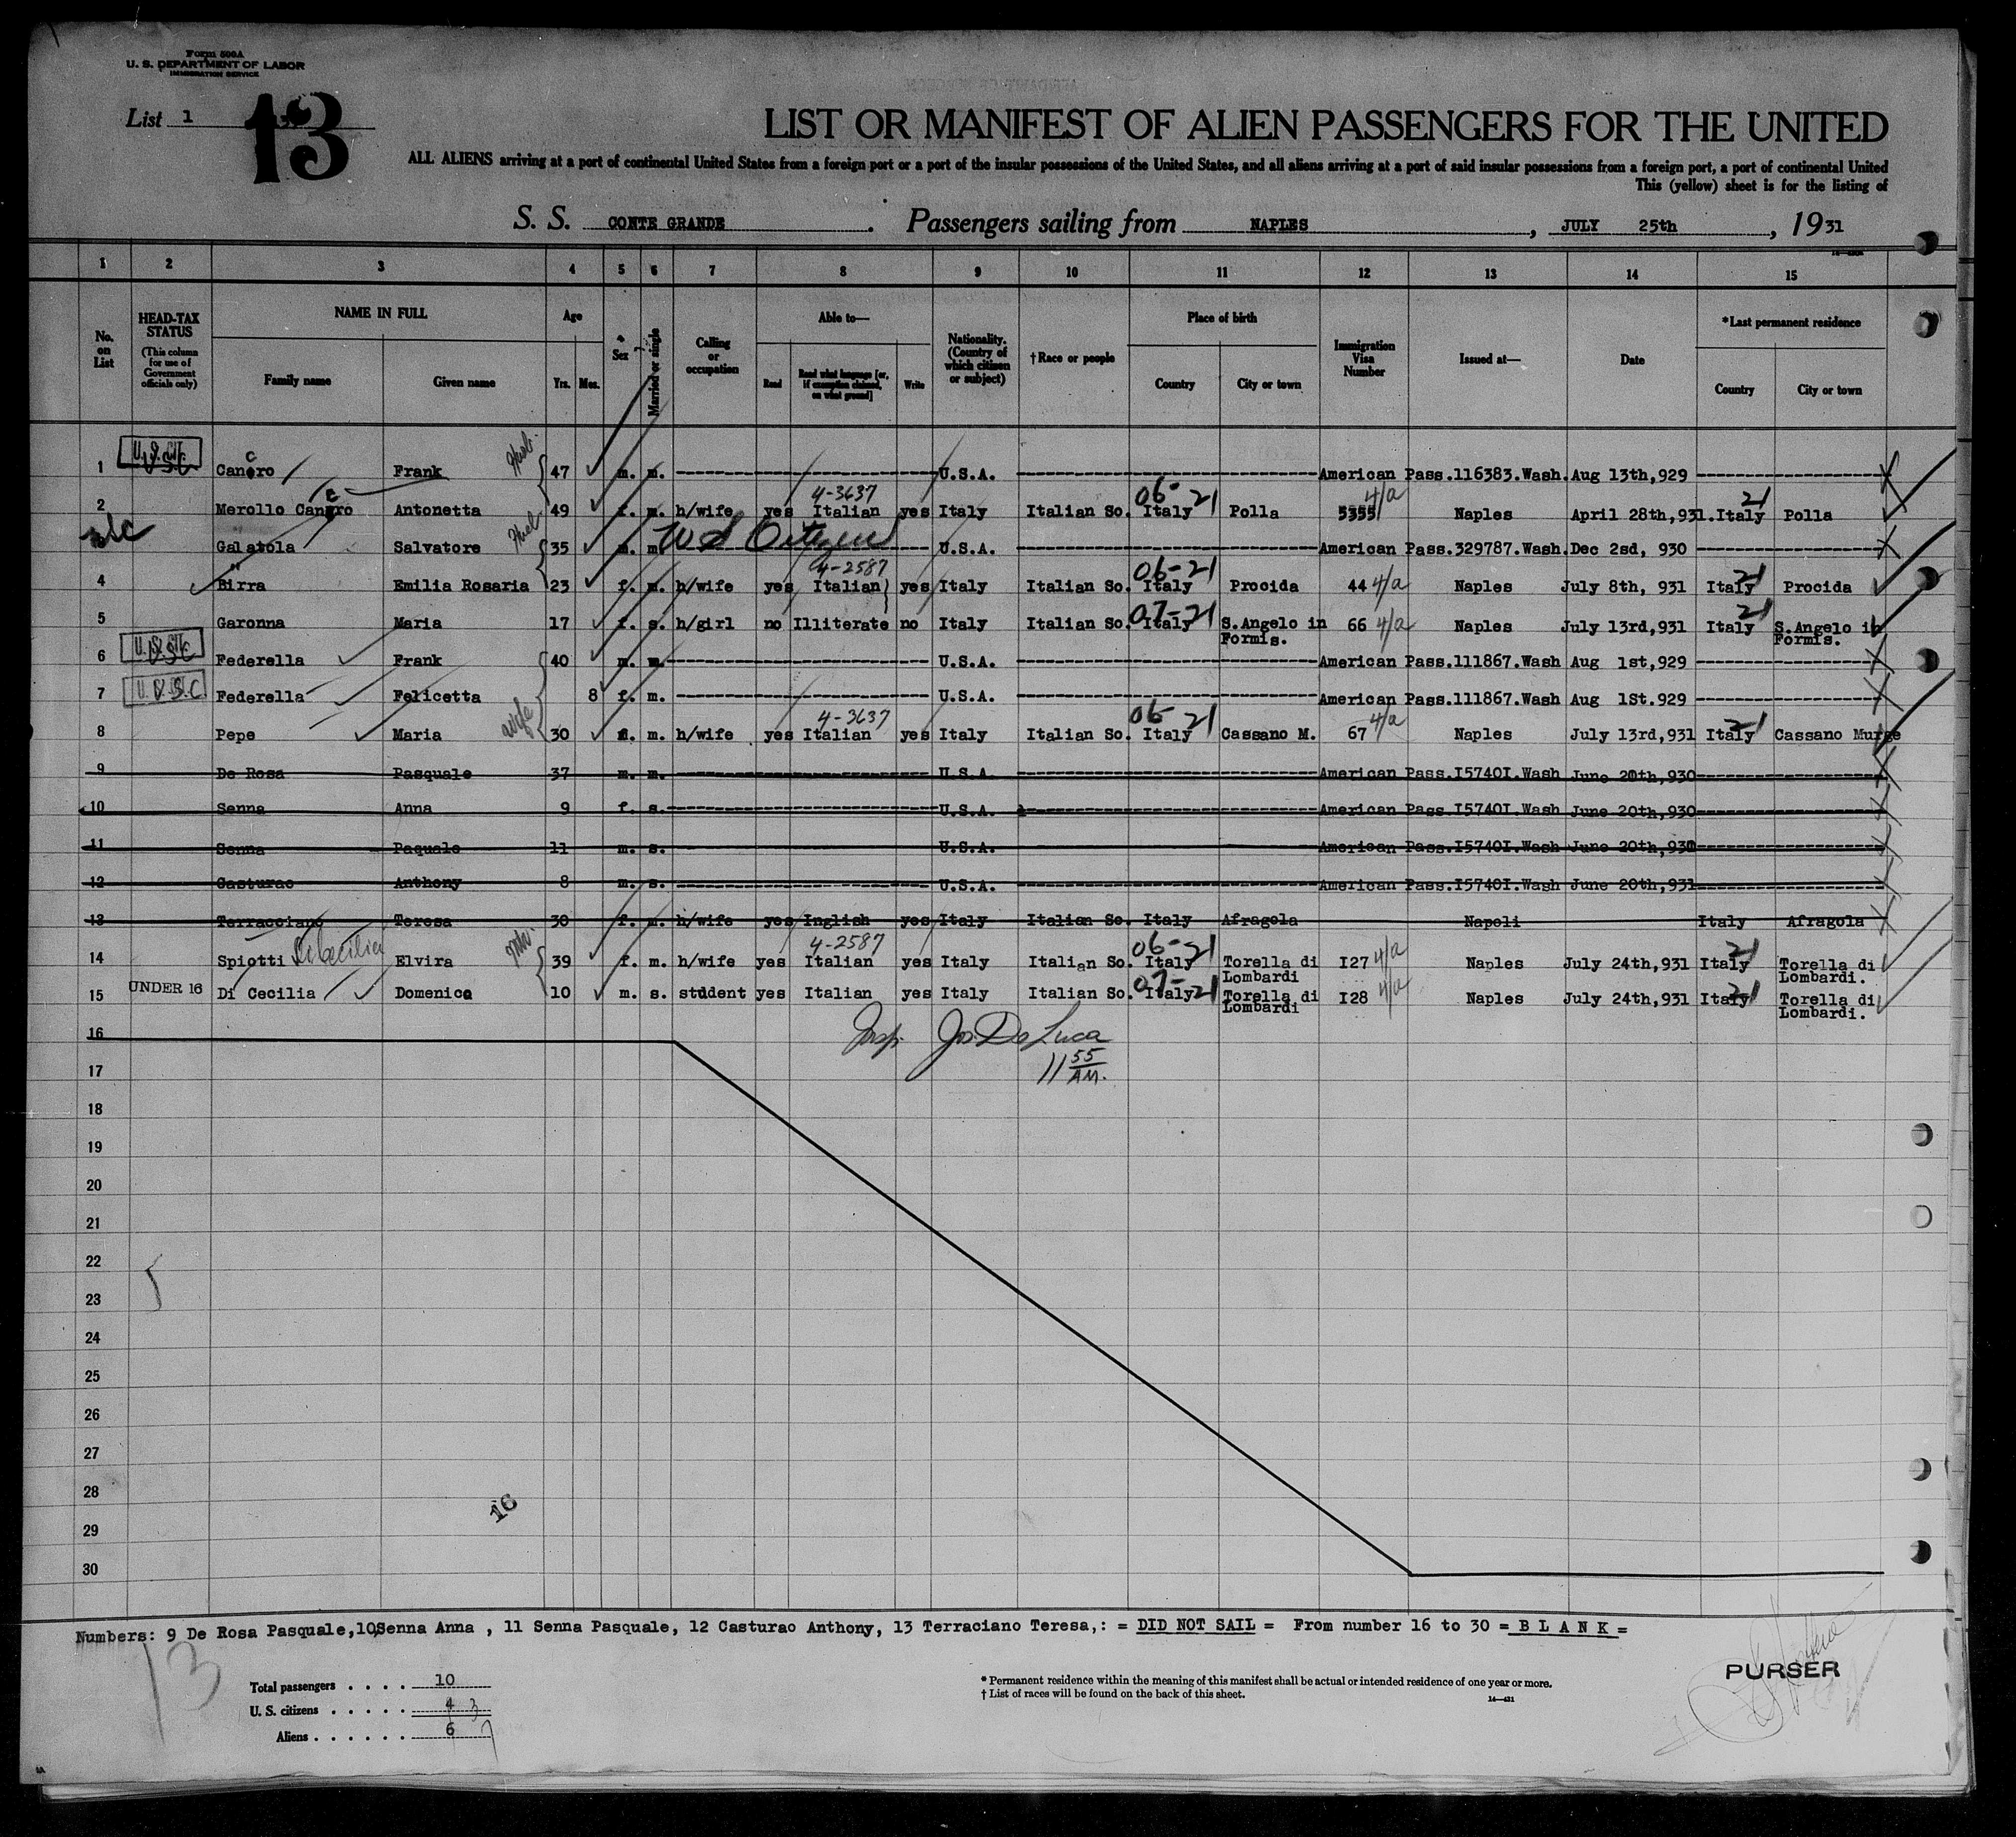 Form 500A
U. S. DEPARTMENT OF LABOR
IMMIGRATION SERVICE
List 1
13
LIST OR MANIFEST OF ALIEN PASSENGERS FOR THE UNITED
ALL ALIENS arriving at a port of continental United States from a foreign port or a port of the insular possessions of the United States, and all aliens arriving at a port of said insular possessions from a foreign port, a port of continental United
This (yellow) sheet is for the listing of
S. S. CONTE GRANDE. Passengers sailing from NAPLES, JULY 25th, 1931
1 2 3 4 5 6 7 8 9 10 11 12 13 14 15
No. on List
HEAD-TAX STATUS (This column for use of Government officials only)
NAME IN FULL
Family name
Given name
Age
Yrs. Mos.
Sex
Married or single
Calling or occupation
Able to—
Read
Read what language [or, if exemption claimed, on what ground]
Write
Nationality. (Country of which citizen or subject)
† Race or people
Place of birth
Country
City or town
Immigration Visa Number
Issued at—
Date
*Last permanent residence
Country
City or town
1 U.S. CIT. USC Canero c Frank Husb. 47 m. m. U.S.A. American Pass.116383.Wash. Aug 13th,929
4-3637 06-21 4/a 21
2 Merollo Canero c Antonetta 49 f. m. h/wife yes Italian yes Italy Italian So. Italy Polla 5355 Naples April 28th,931. Italy Polla
Galatola Salvatore Husb. 35 m. m. U S Citizen U.S.A. American Pass.329787.Wash. Dec 2sd, 930
4-2587 06-21 21
4 Birra Emilia Rosaria 23 f. m. h/wife yes Italian yes Italy Italian So. Italy Procida 44 4/a Naples July 8th, 931 Italy Procida
07-21 21
5 Garonna Maria 17 f. s. h/girl no Illiterate no Italy Italian So. Italy S.Angelo in Formis. 66 4/a Naples July 13rd,931 Italy S.Angelo in Formis.
6 U.S. CIT. USC Federella Frank 40 m. m. U.S.A. American Pass.111867.Wash Aug 1st,929
7 U.S.C Federella Felicetta 8 f. m. U.S.A. American Pass.111867.Wash Aug 1St.929
4-3637 06-21 4/a 21
8 Pepe Maria wife 30 f. m. h/wife yes Italian yes Italy Italian So. Italy Cassano M. 67 Naples July 13rd,931 Italy Cassano Murge
9 De Rosa Pasquale 37 m. m. U.S.A. American Pass.I5740I.Wash June 20th,930
10 Senna Anna 9 f. s. U.S.A. American Pass.I5740I.Wash June 20th,930
11 Senna Paquale 11 m. s. U.S.A. American Pass.I5740I.Wash June 20th,930
12 Casturao Anthony 8 m. s. U.S.A. American Pass.I5740I.Wash June 20th,931
13 Terracciano Teresa 30 f. m. h/wife yes Inglish yes Italy Italian So. Italy Afragola Napoli Italy Afragola
4-2587 06-21 21
14 Spiotti DiCecilia Elvira 39 f. m. h/wife yes Italian yes Italy Italian So. Italy Torella di Lombardi I27 4/a Naples July 24th,931 Italy Torella di Lombardi.
07-21 21
15 UNDER 16 Di Cecilia Domenico 10 m. s. student yes Italian yes Italy Italian So. Italy Torella di Lombardi I28 4/a Naples July 24th,931 Italy Torella di Lombardi.
16
Insp. Jos. De Luca
11 55 AM.
17
18
19
20
21
22
23
24
25
26
27
28
16
29
30
Numbers: 9 De Rosa Pasquale,10,Senna Anna , 11 Senna Pasquale, 12 Casturao Anthony, 13 Terraciano Teresa,: = DID NOT SAIL = From number 16 to 30 = B L A N K =
13
Total passengers . . . . 10
U. S. citizens . . . . . 4 3
Aliens . . . . . . 6 7
* Permanent residence within the meaning of this manifest shall be actual or intended residence of one year or more.
† List of races will be found on the back of this sheet.
14—431
PURSER